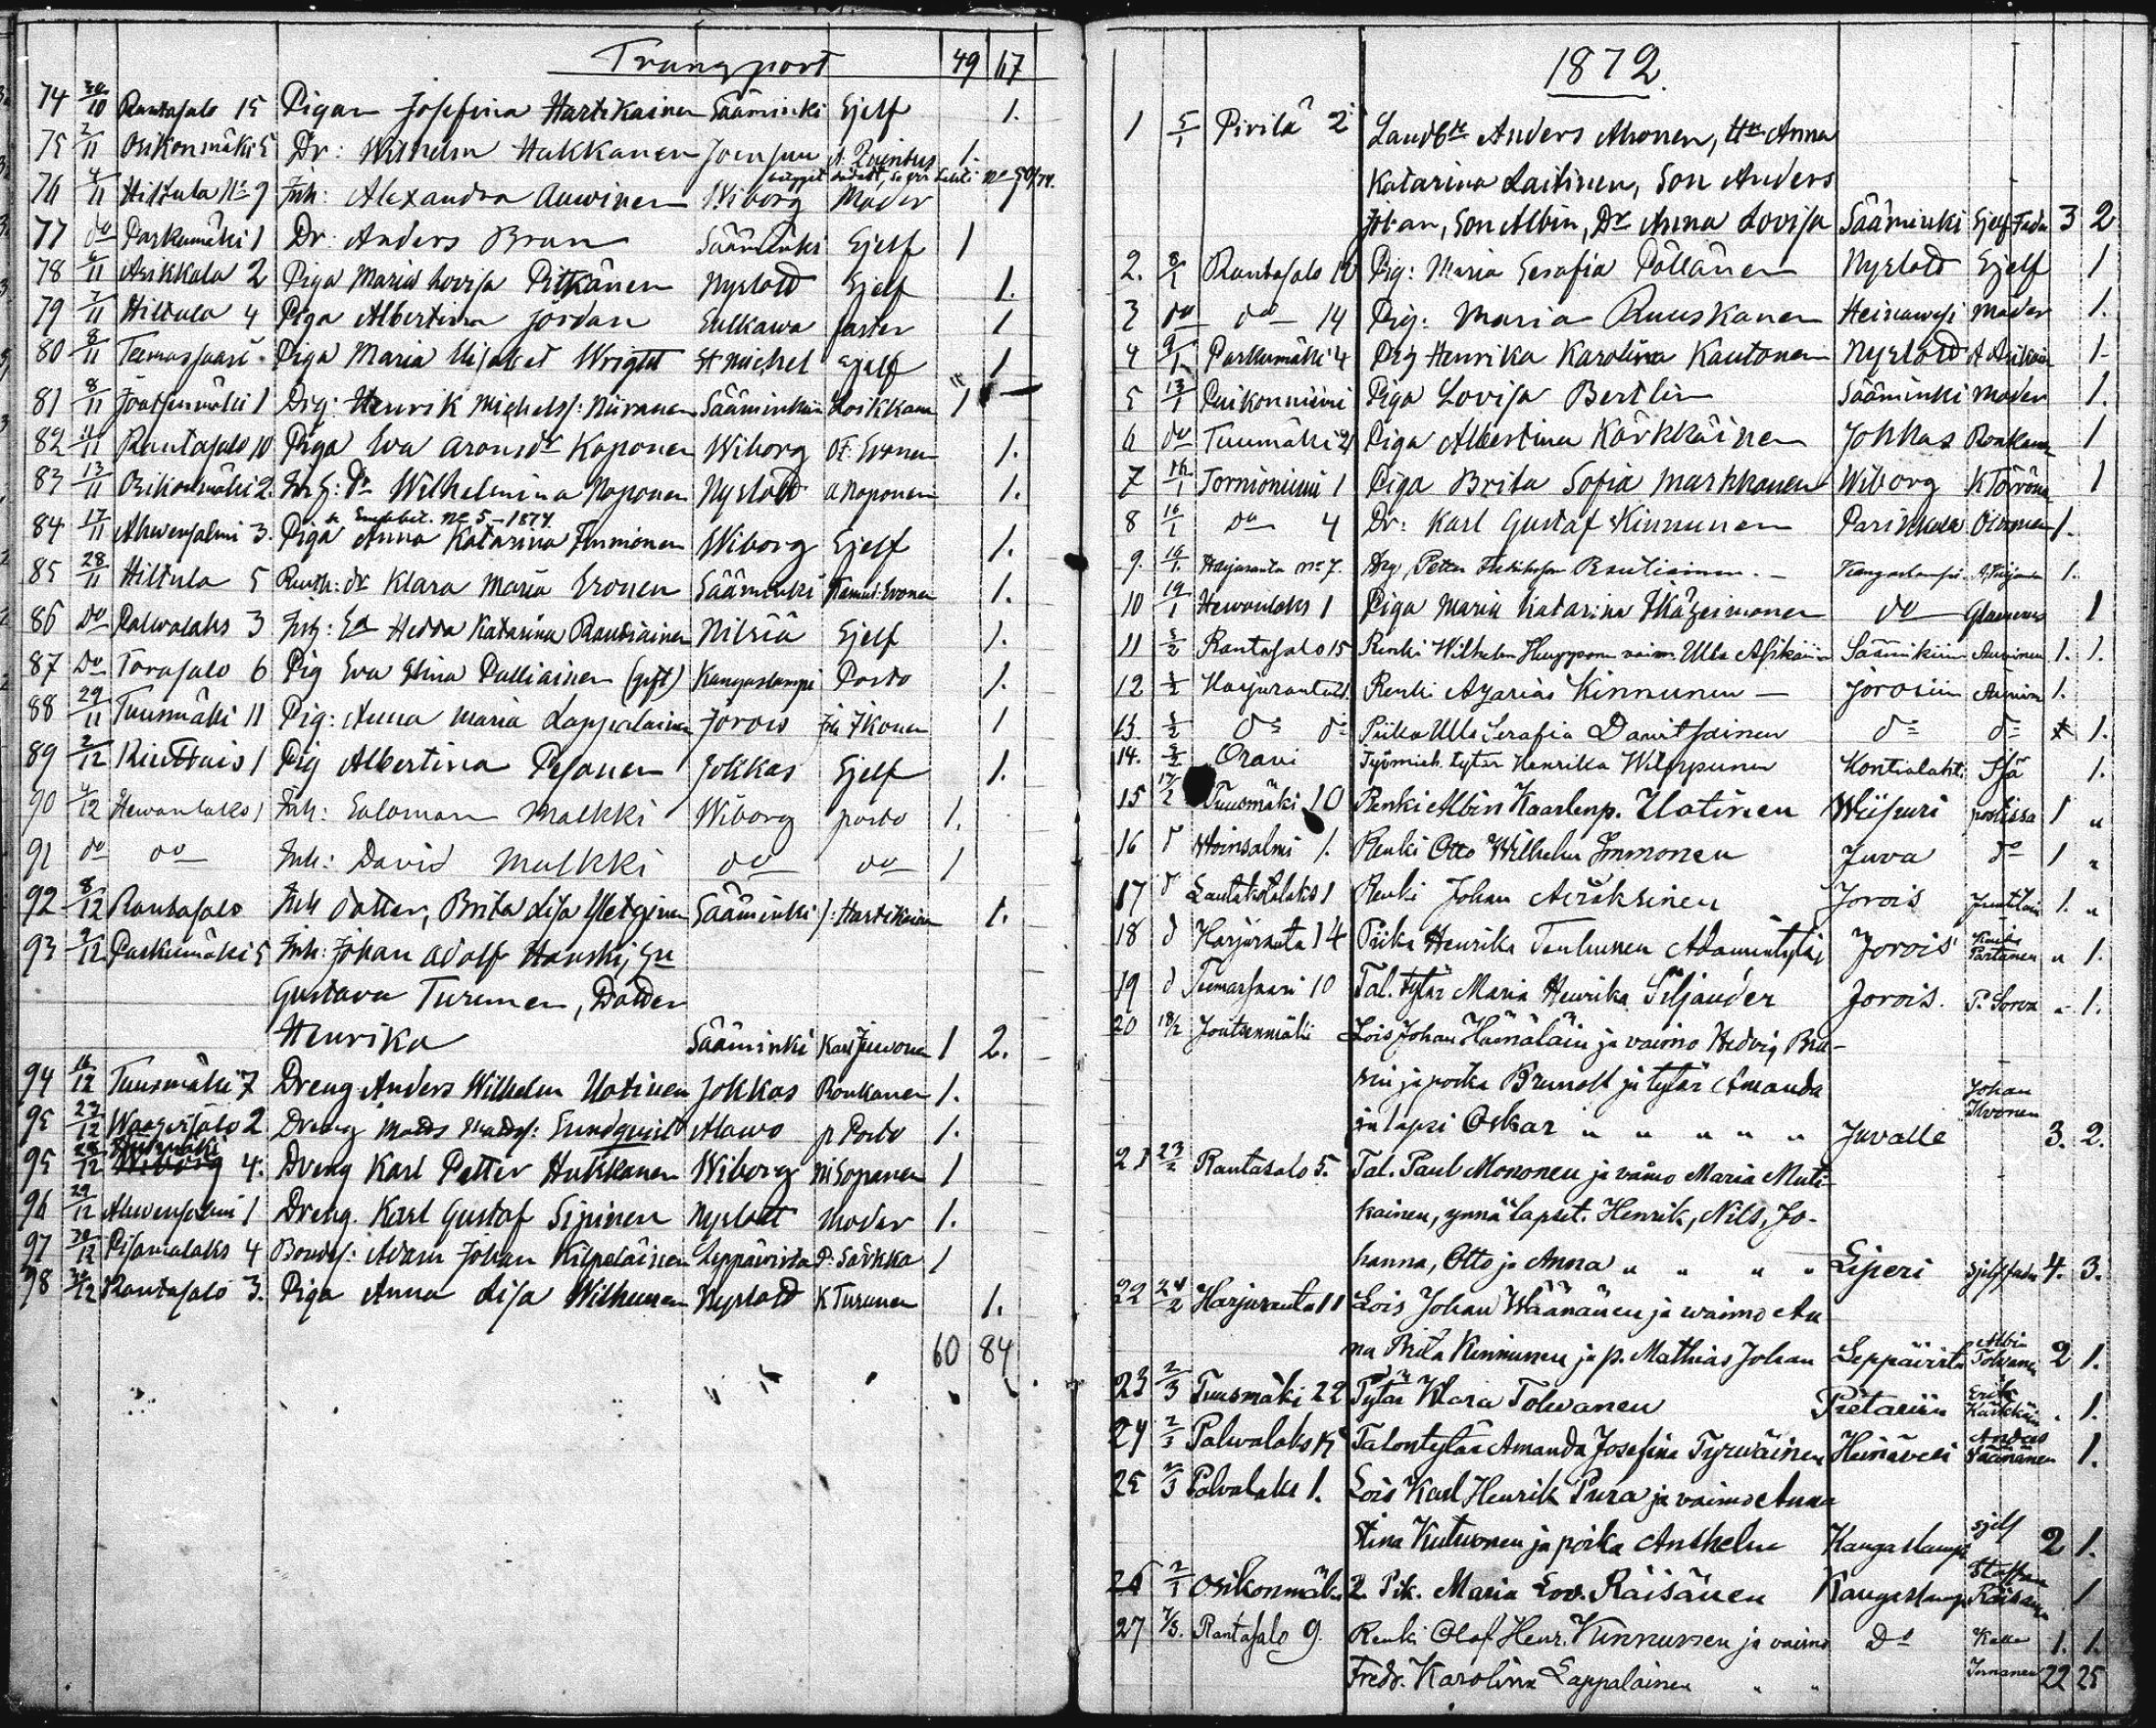 Transport 49 67
74 30/10 Rantasalo 15 Pigan Josefina Hartikainen Sääminki Sjelf 1.
75 2/11 Osikonmäki 5 Dr: Wilhelm Hakkanen Joensuu 1.
76 4/11 Hiltula No 9 Inh: Alexandra Auwinen Wiborg Moder 1
77 do Parkumäki 1 Dr Anders Brun Sääminki Sjelf 1
78 6/11 Asikkala 2 Piga Maria Lovisa Pitkänen Nyslott Sjelf 1.
79 7/11 Hiltula 4 Piga Albertina Jordan Sulkawa faster 1
80 8/11 Teemassaari Piga Maria Elisabet Wright St Michel Sjelf 1
81 8/11 Joutsenmäki 1 Drg: Henrik Michelss: Niiranen Sääminkiin Loikkanen 1
82 11/11 Rantasalo 10 Piga Eva Aronsdr Kaponen Wiborg Of: Eronen 1.
83 13/11 Osikonmäki 2. Inh: dr Wilhelmina Naponen Nyslott A Naponen 1.
No 5-1874.
84 17/11 Ahwensalmi 3. Piga Anna Katarina Immonen Wiborg Sjelf 1.
85 28/11 Hiltula 5 Rusth: dr Klara Maria Eronen Sääminki Eronen 1.
86 do Palwalaks 3 Inh: Ea Hedda Katarina Rautiainen Nilsiä Sjelf 1.
87 Do Torasalo 6 Pig Eva Stina Palliainen (gift) Kangaslampi Porto 1.
88 29/11 Tuusmäki 11 Pig: Anna Maria Lappalainen Jorois Joh Ikonen 1
89 2/12 1 Pig Albertina Pesonen Jokkas Sjelf 1.
90 4/12 Hewonlaks 1 Inh: Salomon Malkki Wiborg porto 1.
91 do do Inh: David Malkki do do 1
92 8/12 Rantasalo Inh dotter, Brita Lisa Sääminki J: Hartikainen 1.
93 9/12 Parkumäki 5 Inh: Johan Adolf Hauski, Hu
Gustava Turunen, Dotter
Henrika Sääminki Karl Juvonen 1 2.
94 16/12 Tuusmäki 7 Dreng Anders Wilhelm Uotinen Jokkas Ronkanen 1.
95 23/12 Waajasalo 2 Dreng Mats Matss: Sundqvist Alawo p Porto 1.
95 28/12 4. Dreng Karl Petter Hukkanen Wiborg Sopanen 1
96 29/12 Ahwensalmi 1 Dreng. Karl Gustaf Sipinen Nyslott Moder 1.
97 30/12 Pisamalaks 4 Bondes: Adam Johan Kilpeläinen Leppävirta P: Särkkä 1
98 30/12 Rantasalo 3. Piga Anna Lisa Wilhunen Nyslott K Turunen 1.
60 84
1872.
1 5/1 Pirilä 2 Landbde Anders Ahonen, Hu Anna
Katarina Laitinen, Son Anders
Johan, Son Albin, Dr Anna Lovisa Sääminki Sjelf Fader 3 2
2. 8/1 Rantasalo 12 Pig: Maria Serafia Pöllänen Nyslott Sjelf 1
3 do do 14 Pig: Maria Ruuskanen Heinawesi Moder 1.
4 9/1 Parkumäki 4 Pig Henrika Karolina Kautonen Nyslott A Asikain 1
5 13/1 Piga Lovisa Bertlin Sääminki Moder 1.
6 do Tuusmäki 21 Piga Albertina Kärkkäinen Jokkas Ronkanen 1
7 16/1 Torniöniemi 1 Piga Brita Sofia Markkanen Wiborg K Törrönen 1
8 16/1 do 4 Dr: Karl Gustaf Kinnunen Parikkala 1.
9. 19/1 Harjuranta no 7. Drg Petter Rautiainen. Kangaslampi. 1.
10 19/1 Hewonlaks 1 Piga Maria Katarina Ikäheimonen do 1
11 5/2 Rantasalo 15 Renki Wilhelm Huupponen vaimo Ulla Asikain Säämikiin Auvinen 1. 1.
12 5/2 Harjuranta Renki Asarias Kinnunen Jorosiin 1.
13. 5/2 do do Piika Ulla Serafia Danitsainen do do 1.
14. 5/2 Oravi Työmieh. tytär Henrika Kontiolahti Isä 1.
15 17/2 Tuusmäki 10 Renki Albin Kaarlenp. Uotinen Wiipuri postissa 1 "
16 d Woinsalmi 1. Renki Otto Wilhelm Immonen Juva do 1 "
17 d Lautakotalaks 1 Renki Johan Jorois Juutilain 1. "
18 d Harjuranta 14 Piika Henrika Tenhunen Jorois Partanen " 1.
19 d Teemassaari 10 Tal. tytär Maria Henrika Siljander Jorois. P. Sorsa " 1.
20 18/2 Joutsenmäki Lois Johan Hämäläin ja vaimo Hedvig
ja poika Brunolf ja tytär Amanda
lapsi Oskar " " " " " Juvalle Johan Ikonen 3. 2.
21 23/2 Rantasalo 5. Tal. Paul Mononen ja vaimo Maria Muti-
kainen, ynnä lapset. Henrik, Nils, Jo-
hanna, Otto ja Anna " " " " Liperi 4. 3.
22 24/2 Harjuranta 11 Lois Johan Wäänänen ja waimo An-
na Brita Kinnunen ja p. Mathias Johan Leppävirta Albin Tolvanen 2 1.
23 2/3 Tuusmäki 22 Tytär Klara Tolvanen Pietariin Erik Kärkkäin " 1.
24 2/3 Palwalaks Talontytär Amanda Josefina Tyrwäinen Heinävesi Väänänen 1.
25 2/3 Palvalaks 1. Lois Karl Henrik Pura ja vaimo Anna
Stina Kutvonen ja poika Anshelm Kangaslampi sjelf 2 1.
26 2/3 Osikonmäki 2 Pik. Maria Lov. Räisänen Kangaslampi Staffan Räisänen 1
27 7/3. Rantasalo 9. Renki Olof Henr. Kinnunen ja vaimo Do Kalle 1. 1.
Fredr. Karolina Lappalainen " " 22 25